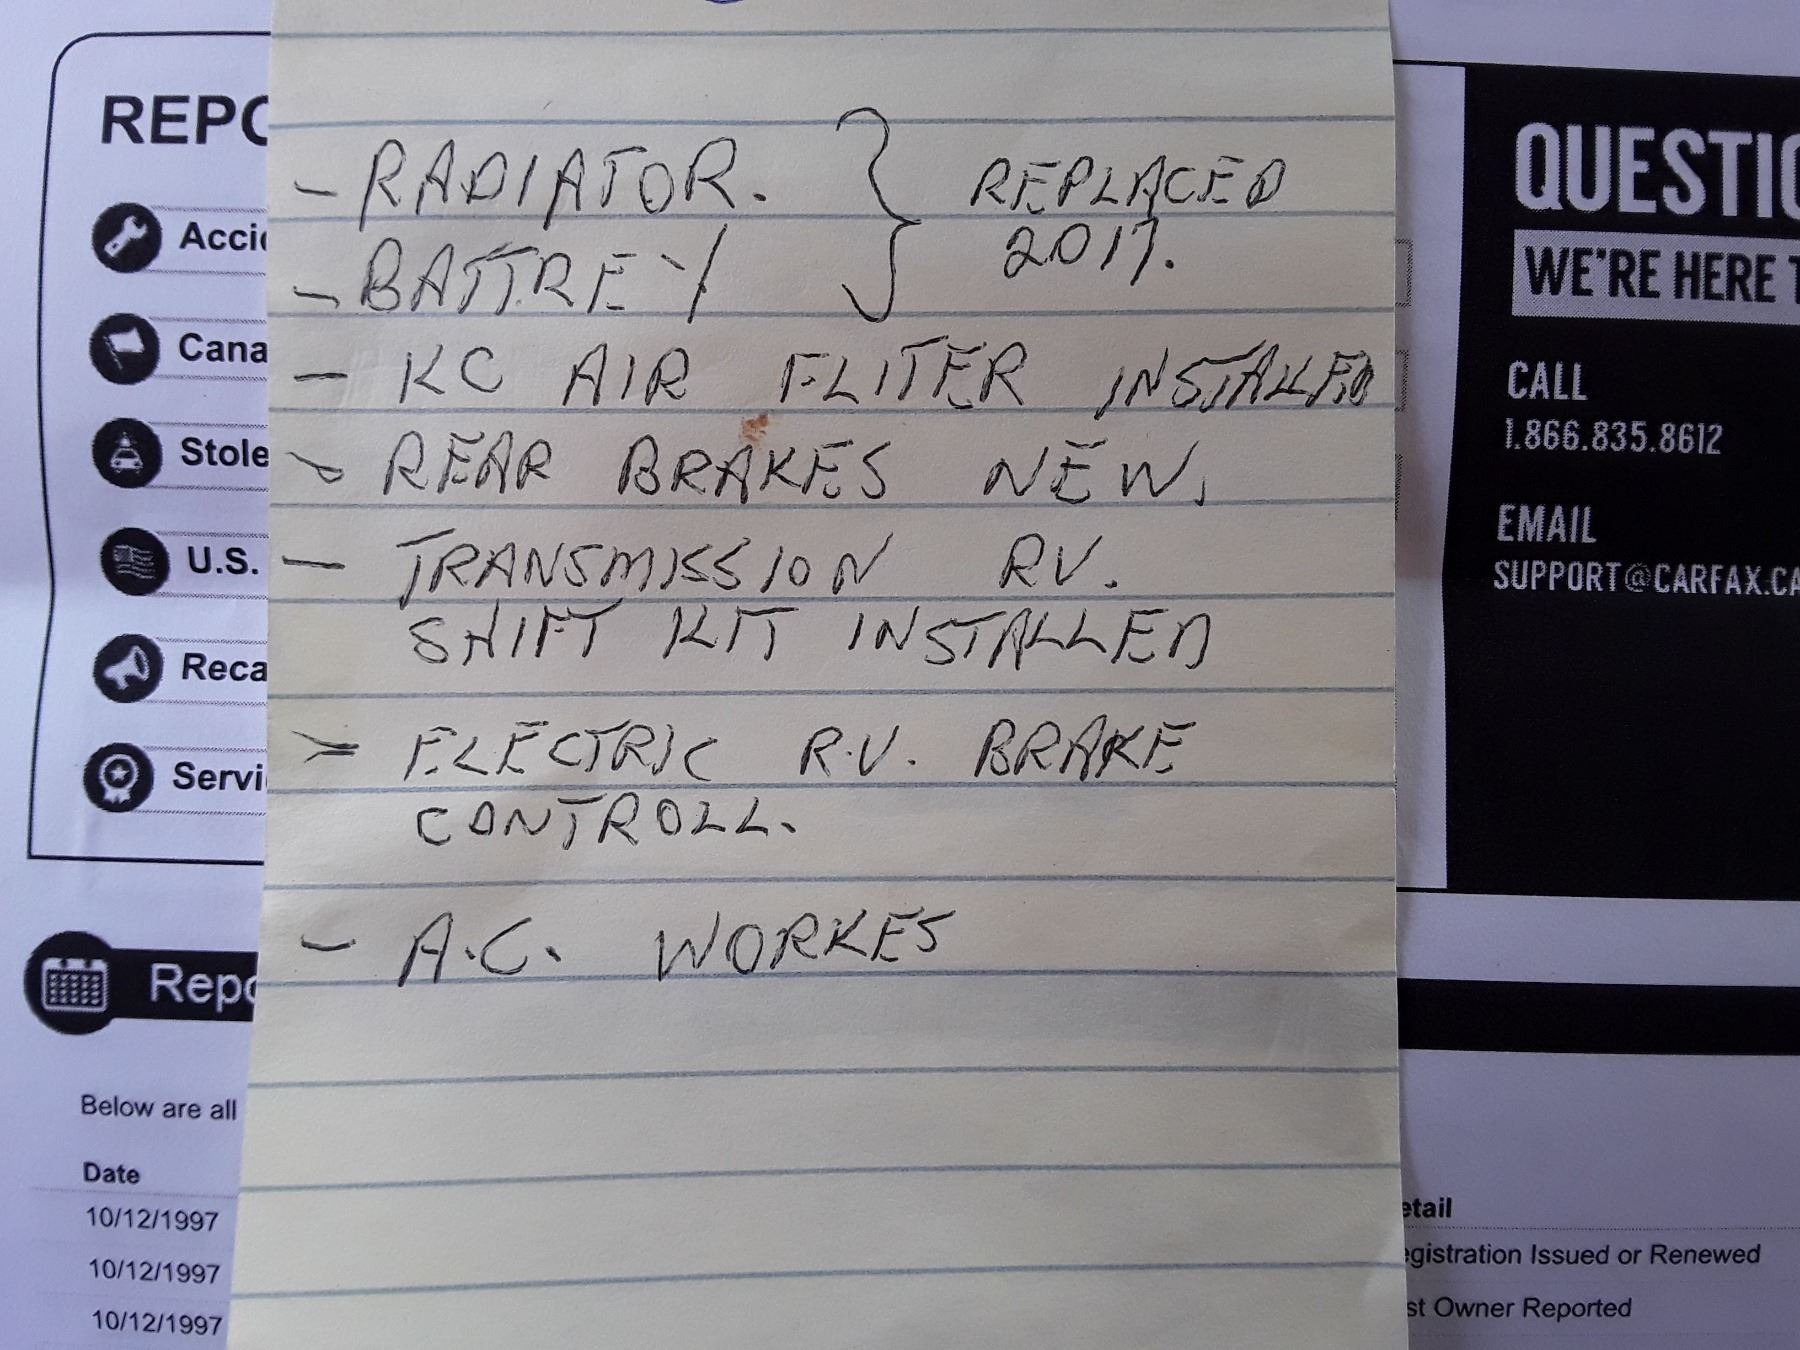 REPO
Acci
Cana
Stole
U.S.
Reca
Servi
Repo
Below are all
Date
10/12/1997
10/12/1997
10/12/1997
- RADIATOR. } REPLACED
- BATTREY 2017.
- KC AIR FLITER INSTALLED
- REAR BRAKES NEW.
- TRANSMISSION RV.
SHIFT KIT INSTALLED
- ELECTRIC R.V. BRAKE
CONTROLL.
- A.C. WORKES
QUESTIO
WE'RE HERE T
CALL
1.866.835.8612
EMAIL
SUPPORT@CARFAX.CA
etail
egistration Issued or Renewed
st Owner Reported